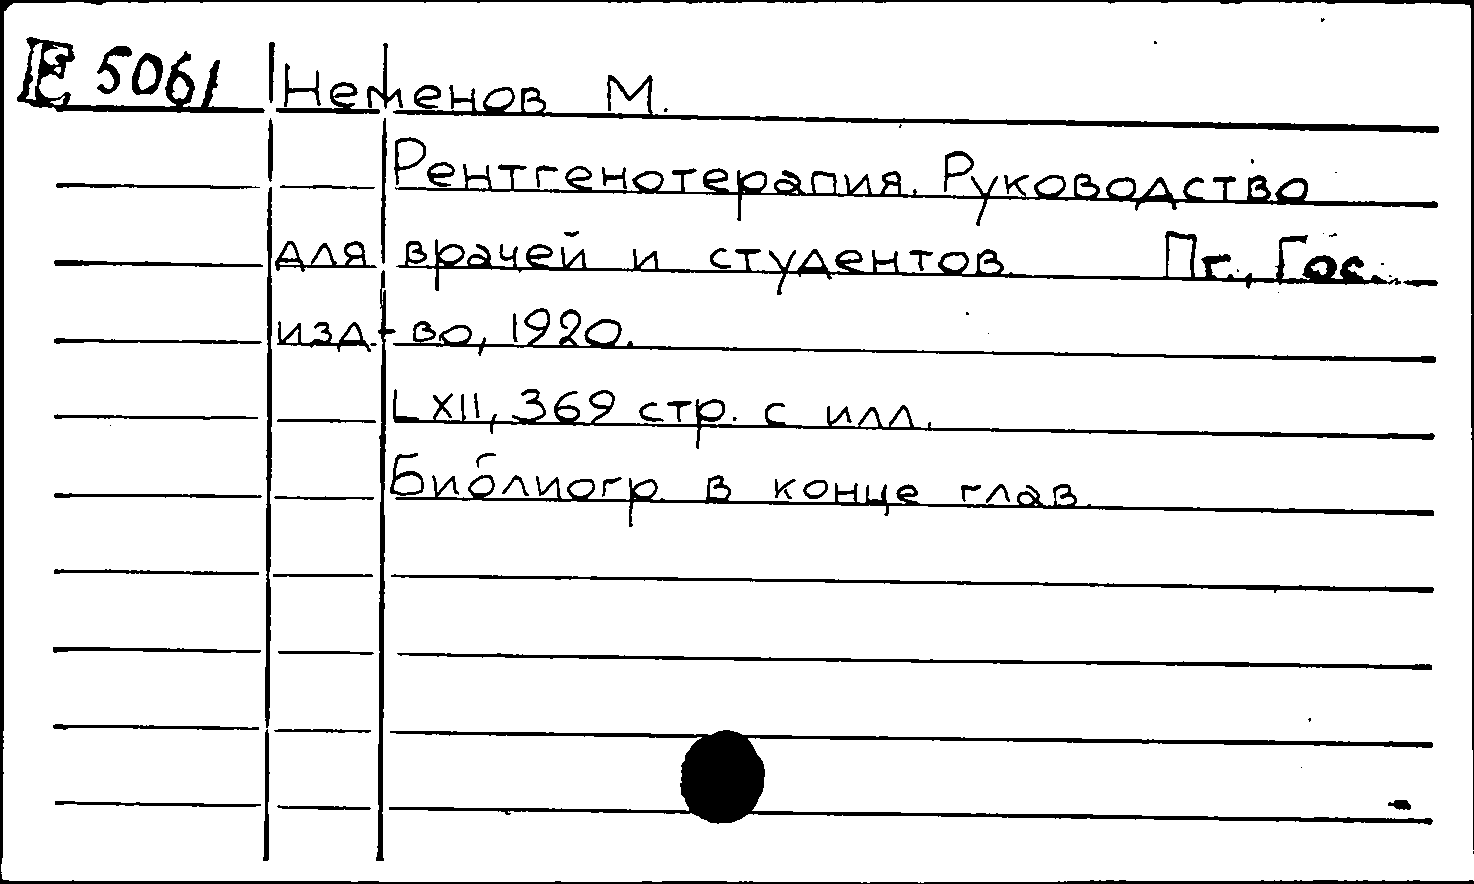 Е 5061 Неменов М.
Рентгенотерапия. Руководство
для врачей и студентов. Пг., Гос.
изд-во, 1920.
LXII, 369 стр. с илл.
Библиогр. в конце глав.